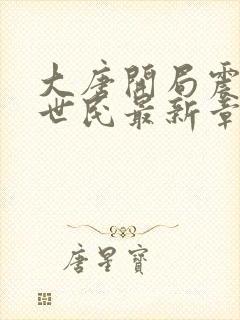 大唐開局震
世民最新章
唐星寶